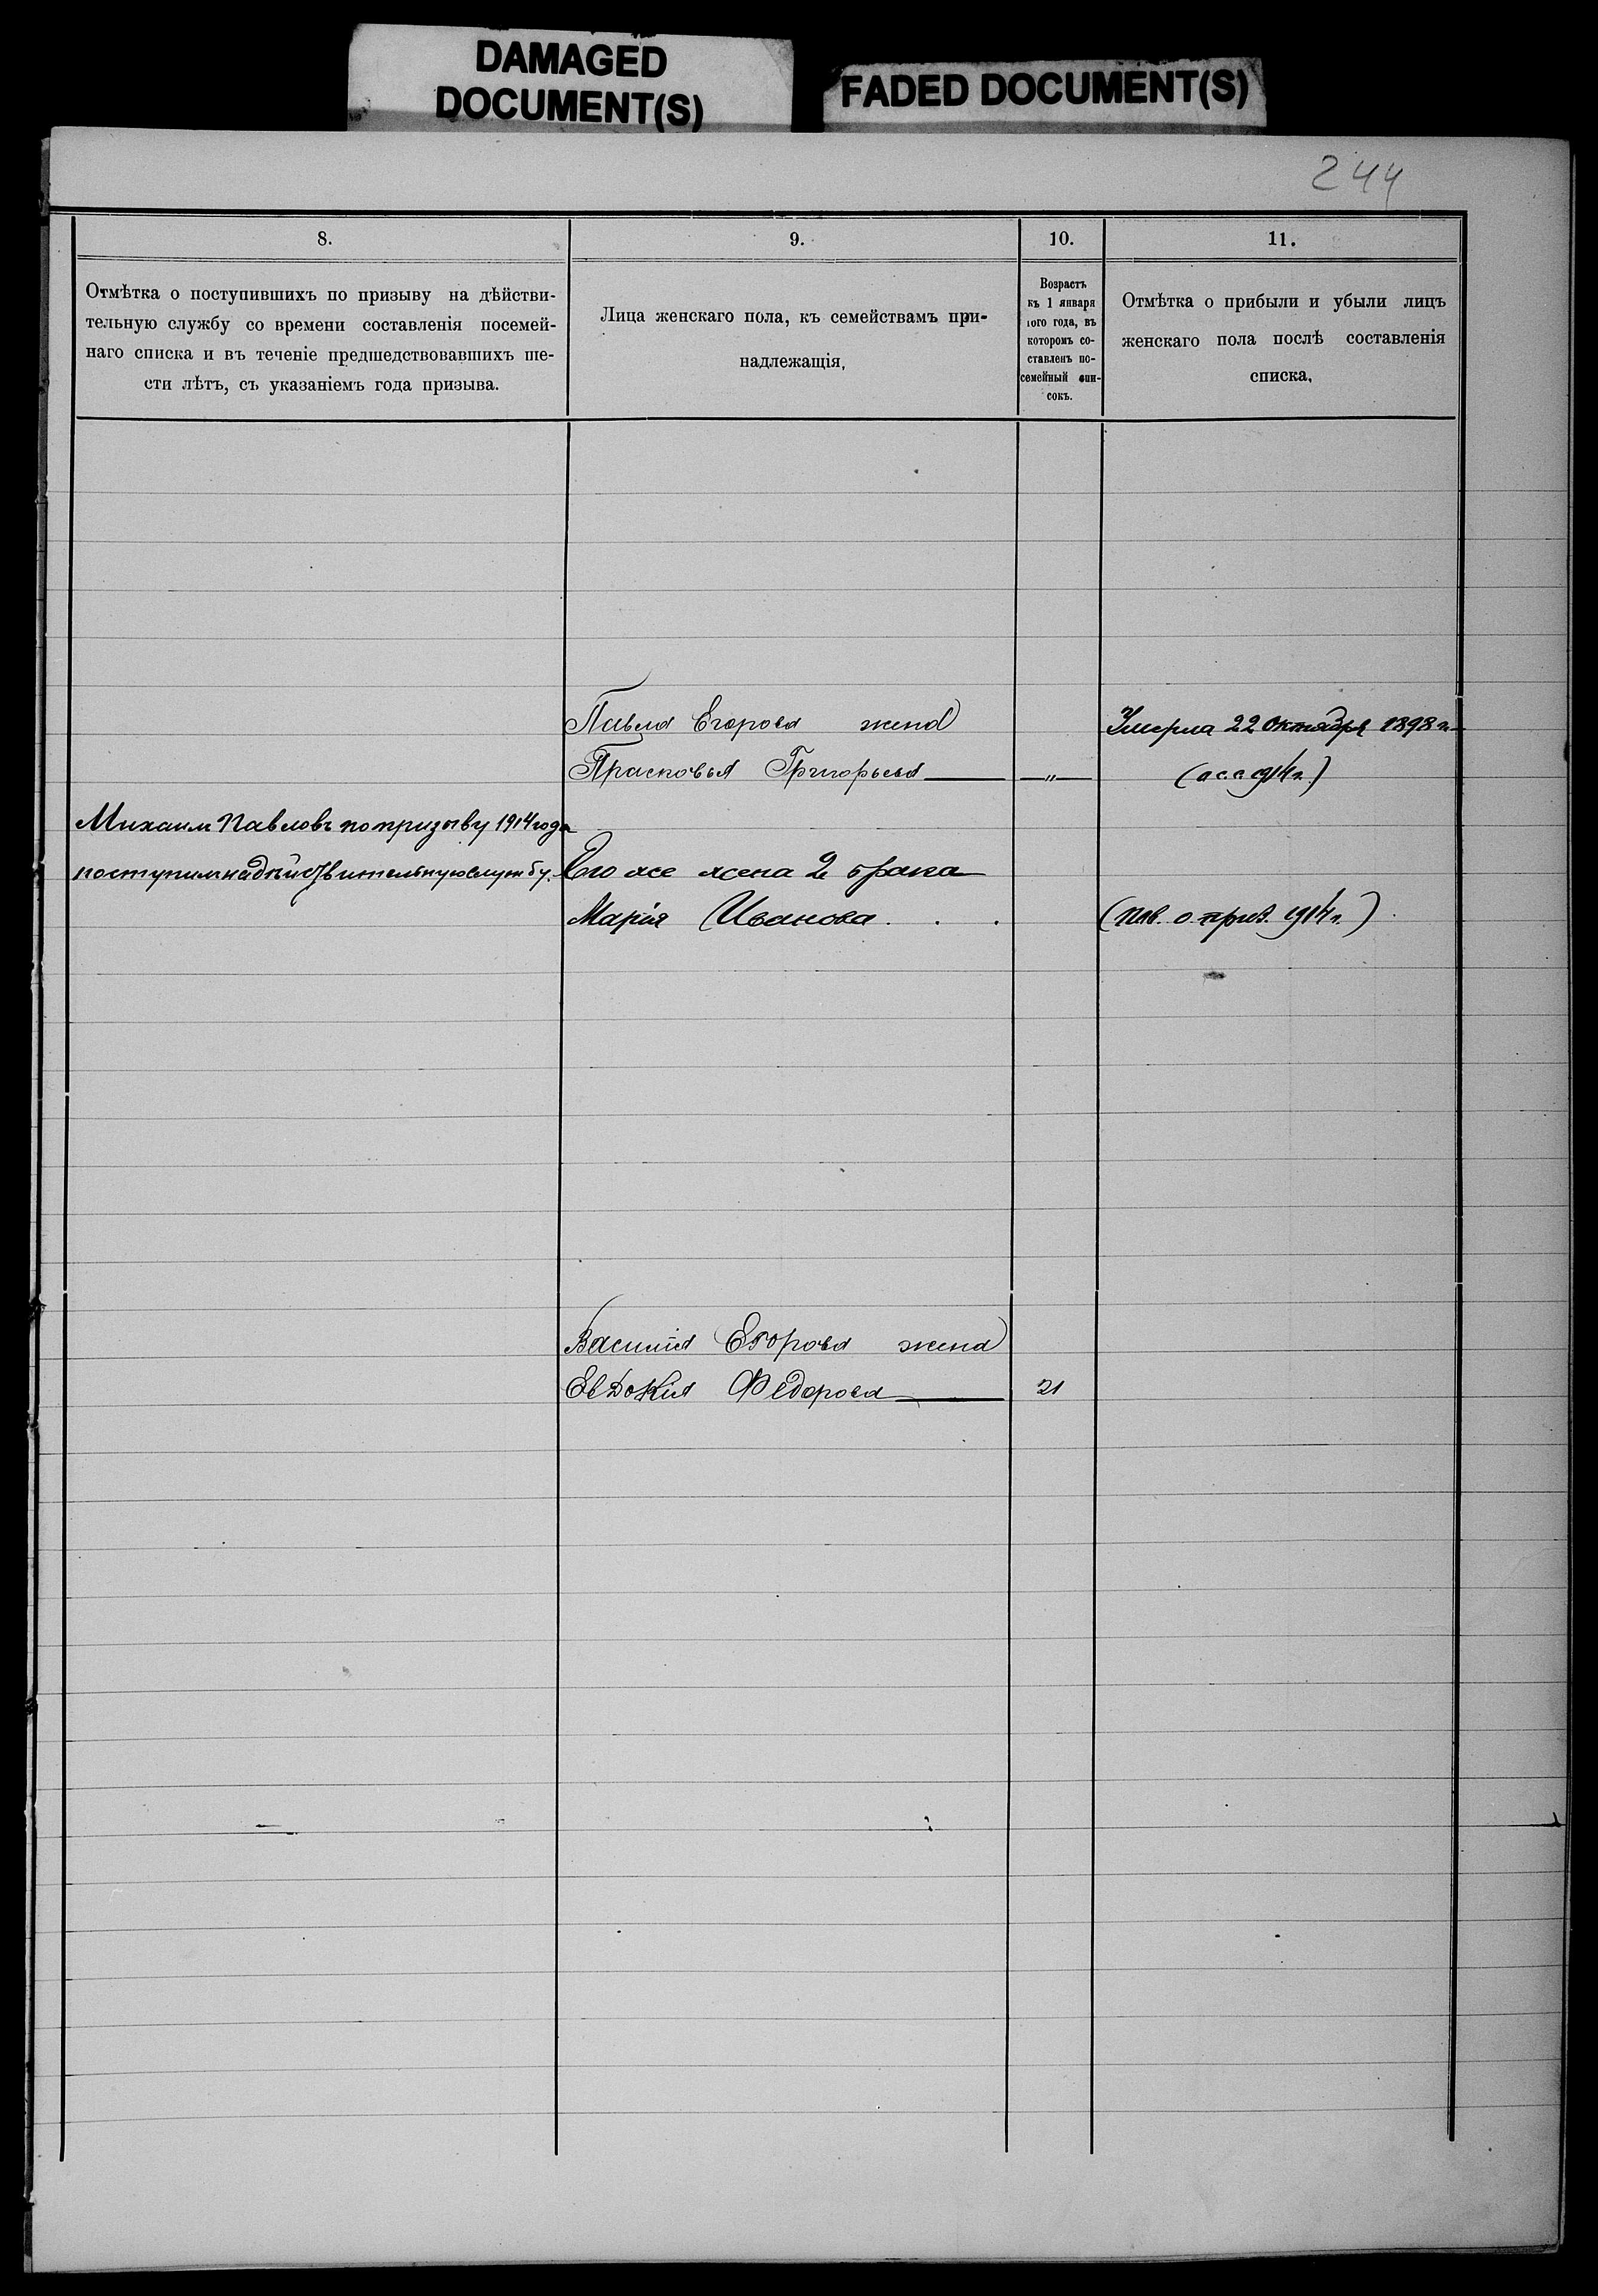 DAMAGED
DOCUMENT(S)
FADED DOCUMENT(S)
244
8.
9.
10.
11.
Отмѣтка о поступившихъ по призыву на дѣйстви-
тельную службу со времени составленія посемей-
наго списка и въ теченіе предшедствовавшихъ ше-
сти лѣтъ, съ указаніемъ года призыва.
Лица женскаго пола, къ семействамъ при-
надлежащія,
Возрастъ
къ 1 января
того года, въ
которомъ со-
ставленъ по-
семейный спи-
сокъ.
Отмѣтка о прибыли и убыли лицъ
женскаго пола послѣ составленія
списка,
Павла Егорова жена
Умерла 22 Октября 1898 г.
Прасковья Григорьева
"
1914 г.)
Михаилъ Павловъ по призыву 1914 года
поступилъ на дѣйствительную службу.
Его же жена 2 брака
Марія Иванова . . .
1914 г.)
Василія Егорова жена
Евдокія Федорова
21